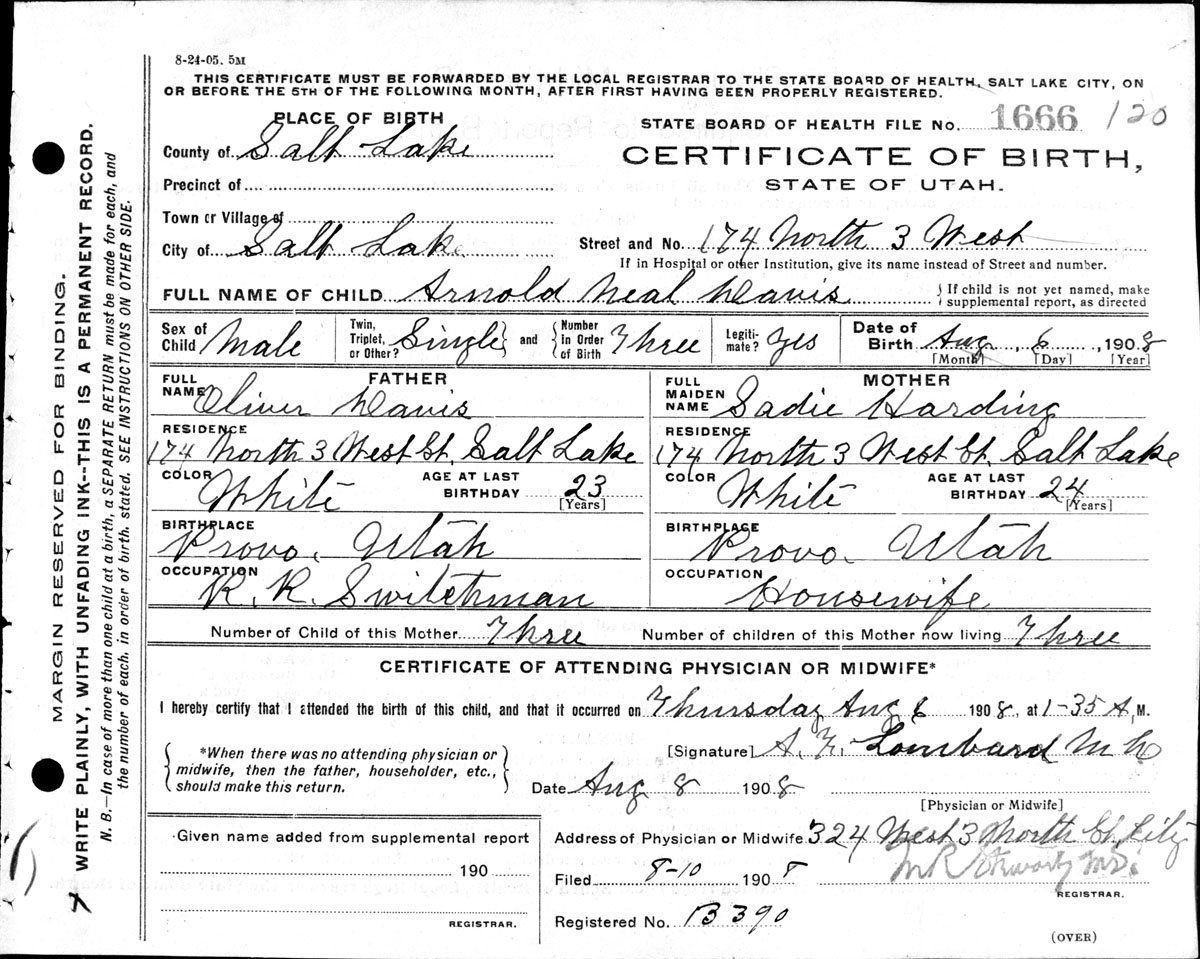 8-24-05. 5M
THIS CERTIFICATE MUST BE FORWARDED BY THE LOCAL REGISTRAR TO THE STATE BOARD OF HEALTH, SALT LAKE CITY, ON
OR BEFORE THE 5TH OF THE FOLLOWING MONTH, AFTER FIRST HAVING BEEN PROPERLY REGISTERED.
PLACE OF BIRTH
STATE BOARD OF HEALTH FILE No. 1666 120
County of Salt Lake
CERTIFICATE OF BIRTH,
Precinct of
STATE OF UTAH.
Town or Village of
City of Salt Lake
Street and No. 174 North 3 West
If in Hospital or other Institution, give its name instead of Street and number.
FULL NAME OF CHILD Arnold Neal Davis
{ If child is not yet named, make
supplemental report, as directed
Sex of Child Male
Twin, Triplet, or Other? Single } and { Number in Order of Birth Three
Legitimate? Yes
Date of Birth Aug 6, 1908
[Month] [Day] [Year]
FATHER
FULL NAME Oliver Davis
RESIDENCE
174 North 3 West St. Salt Lake
COLOR White AGE AT LAST BIRTHDAY 23
[Years]
BIRTHPLACE
Provo. Utah
OCCUPATION
R. R. Switchman
MOTHER
FULL MAIDEN NAME Sadie Harding
RESIDENCE
174 North 3 West St. Salt Lake
COLOR White AGE AT LAST BIRTHDAY 24
[Years]
BIRTHPLACE
Provo. Utah
OCCUPATION
Housewife
Number of Child of this Mother Three Number of children of this Mother now living Three
CERTIFICATE OF ATTENDING PHYSICIAN OR MIDWIFE*
I hereby certify that I attended the birth of this child, and that it occurred on Thursday Aug 6 1908, at 1-35 A. M.
{ *When there was no attending physician or
midwife, then the father, householder, etc.,
should make this return. }
[Signature] Lombard
Date Aug 8 1908
[Physician or Midwife]
Given name added from supplemental report
190
REGISTRAR.
Address of Physician or Midwife 324 West 3 North St. City
Filed 8-10 1908
REGISTRAR.
Registered No. B 390
(OVER)
MARGIN RESERVED FOR BINDING.
WRITE PLAINLY, WITH UNFADING INK--THIS IS A PERMANENT RECORD.
N. B.—In case of more than one child at a birth, a SEPARATE RETURN must be made for each, and
the number of each, in order of birth, stated. SEE INSTRUCTIONS ON OTHER SIDE.